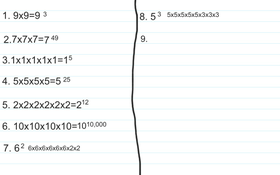 1. 9x9=9 ³
2.7x7x7=7 ⁴⁹
3.1x1x1x1x1=1⁵
4. 5x5x5x5=5 ²⁵
5. 2x2x2x2x2x2=2¹²
6. 10x10x10x10=10¹⁰,⁰⁰⁰
7. 6² 6x6x6x6x6x6x2x2
8. 5³ 5x5x5x5x5x3x3x3
9.